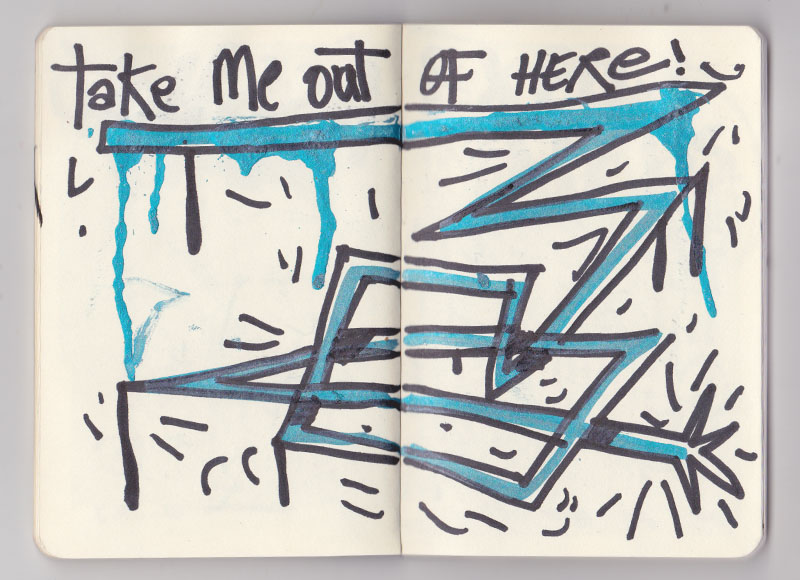 take Me out OF HERe!